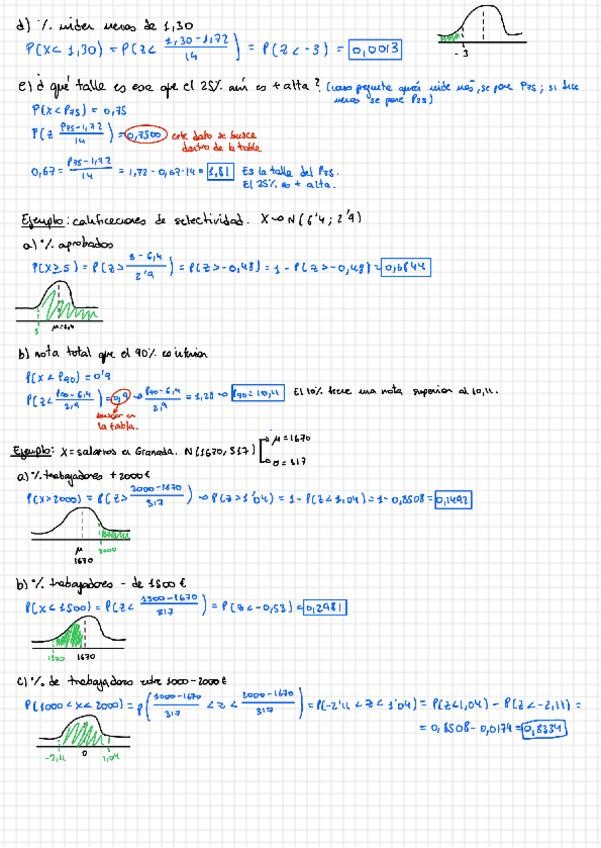 d) % miden menos de 1,30
P(X < 1,30) = P(Z < 1,30 - 1,72 / 14) = P(Z < -3) = 0,0013
-3
e) ¿ qué talle es ese que el 25% aún es + alta?
P(X < P75) = 0,75
P(Z P75 - 1,72 / 14) = 0,7500 este dato se busca
dentro de la tabla
0,67 = P75 - 1,72 / 14 = 1,72 - 0,67·14 = 1,81 Es la talla del P75.
El 25% es + alta.
Ejemplo: calificaciones de selectividad. X ~ N (6'4; 2'9)
a) % aprobados
P(X ≥ 5) = P(Z > 5 - 6,4 / 2'9) = P(Z > -0,48) = 1 - P(Z > -0,48) = 0,6844
5 μ=6,4
b) nota total que el 90% es inferior
P(X < P90) = 0'9
P(Z < P90 - 6,4 / 2,9) = 0,9 → P90 - 6,4 / 2,9 = 1,28 → P90 = 10,11 El 10% tiene una nota superior al 10,11.
buscar en
la tabla.
Ejemplo: X = salarios en Granada. N (1670, 317) μ = 1670
σ = 317
a) % trabajadores +2000€
P(X > 2000) = P(Z > 2000 - 1670 / 317) → P(Z > 1'04) = 1 - P(Z < 1,04) = 1 - 0,8508 = 0,1492
μ
1670
b) % trabajadores - de 1500 €
P(X < 1500) = P(Z < 1500 - 1670 / 317) = P(Z < -0,53) = 0,2981
1500 1670
c) % de trabajadores entre 1000 - 2000€
P(1000 < X < 2000) = P(1000 - 1670 / 317 < Z < 2000 - 1670 / 317) = P(-2'11 < Z < 1'04) = P(Z < 1,04) - P(Z < -2,11) =
= 0,8508 - 0,0174 = 0,8334
-2,11 0 1,04